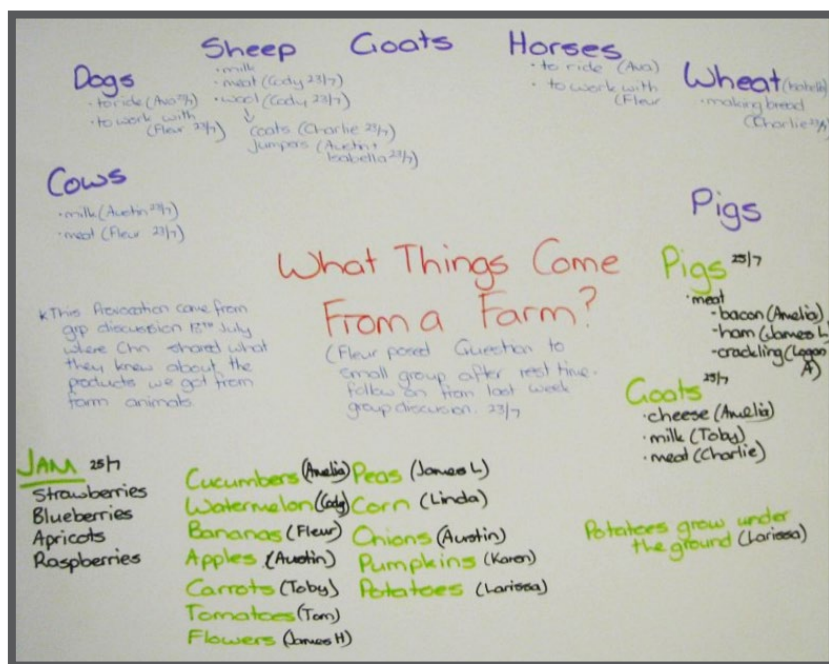 Dogs
• to ride (Ava 23/7)
• to work with
(Fleur 23/7)
Sheep
• milk
• meat (Cody 23/7)
• wool (Cody 23/7)
↓
coats (Charlie 23/7)
jumpers (Austin,
Isabella 23/7)
Goats
Horses
• to ride (Ava)
• to work with
(Fleur
Wheat (Isabella)
• making bread
(Charlie 23/7)
Cows
• milk (Austin 23/7)
• meat (Fleur 23/7)
Pigs
What Things Come
From a Farm?
(Fleur posed Question to
small group after rest time.
follow on from last week
group discussion. 23/7
* This Provocation came from
grp discussion 18th July
where Chn shared what
they knew about the
products we got from
farm animals.
Pigs 25/7
• meat
- bacon (Amelia)
- ham (James L)
- crackling (Logan
A)
Goats 25/7
• cheese (Amelia)
• milk (Toby)
• meat (Charlie)
JAM 25/7
Strawberries
Blueberries
Apricots
Raspberries
Cucumbers (Amelia)
Watermelon (Cody)
Bananas (Fleur)
Apples (Austin)
Carrots (Toby)
Tomatoes (Tom)
Flowers (James H)
Peas (James L)
Corn (Linda)
Onions (Austin)
Pumpkins (Karen)
Potatoes (Larissa)
Potatoes grow under
the ground (Larissa)